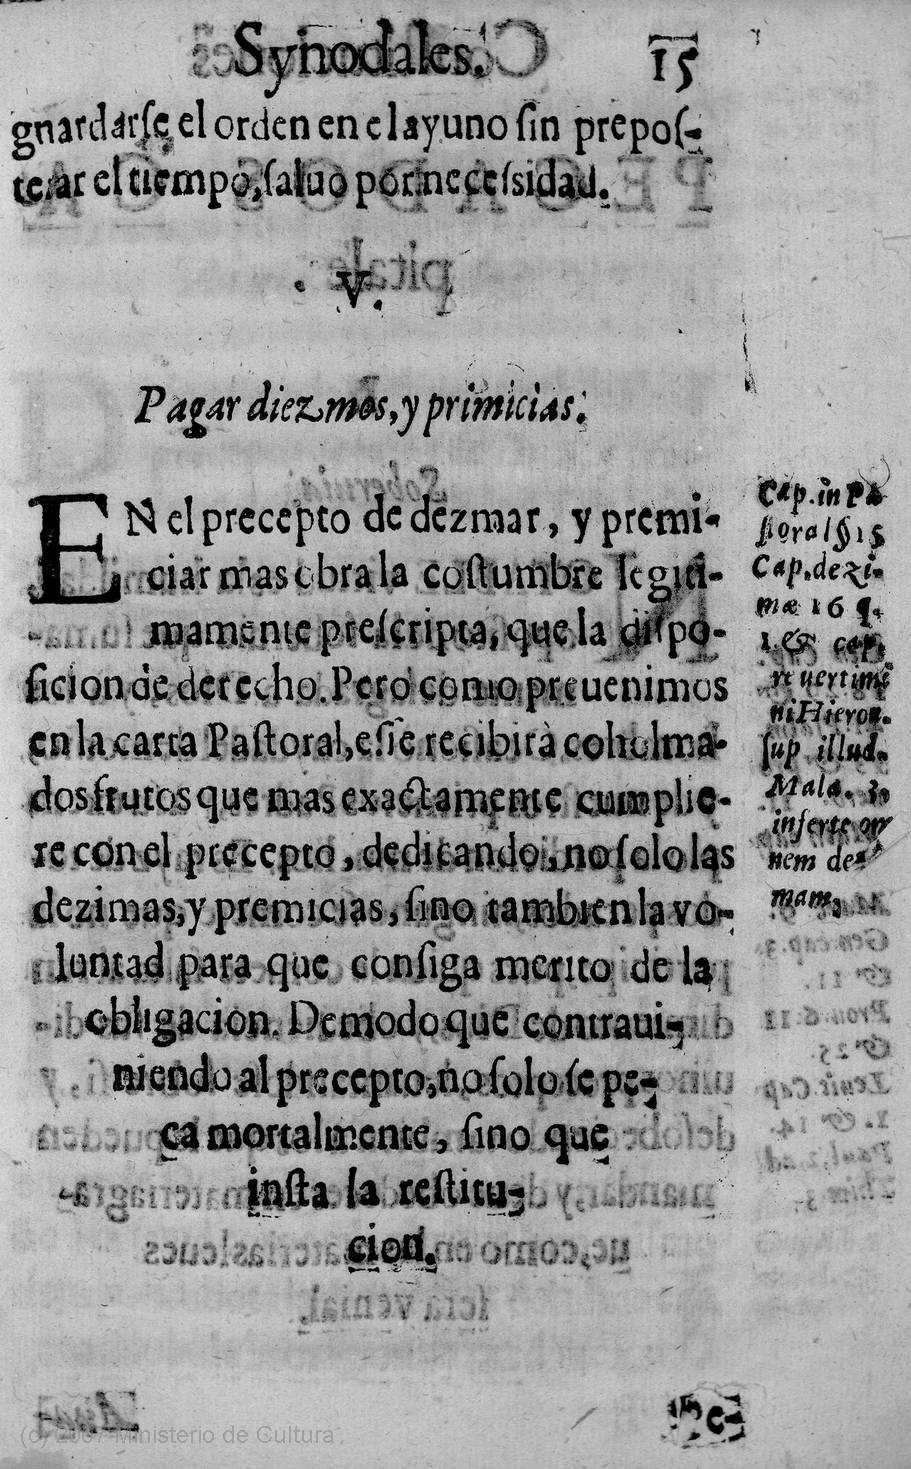 Synodales. 15
gnardarſe el orden en el ayuno ſin prepoſ-
terar el tiempo, ſaluo por neceſsidad.
V.
Pagar diezmos, y primicias.
EN el precepto de dezmar, y premi-
ciar mas obra la coſtumbre legiti-
mamente preſcripta, que la diſpo-
ſicion de derecho. Pero como preuenimos
en la carta Paſtoral, eſſe recibirà coholma-
dos frutos que mas exactamente cumplie-
re con el precepto, dedicando, no ſolo las
dezimas, y premicias, ſino tambien la vo-
luntad para que conſiga merito de la
obligacion. De modo que contraui-
niendo al precepto, no ſolo ſe pe-
ca mortalmente, ſino que
inſta la reſtitu-
cion.
Cap. in Pa
ſtoral § 15
Cap. dezi-
mæ 16 q.
1. & cap.
reuertimi
ni Hieron.
ſup illud.
Mala. 3.
inferte om
nem de-
mam,
Pe-
(c) 2007 Ministerio de Cultura